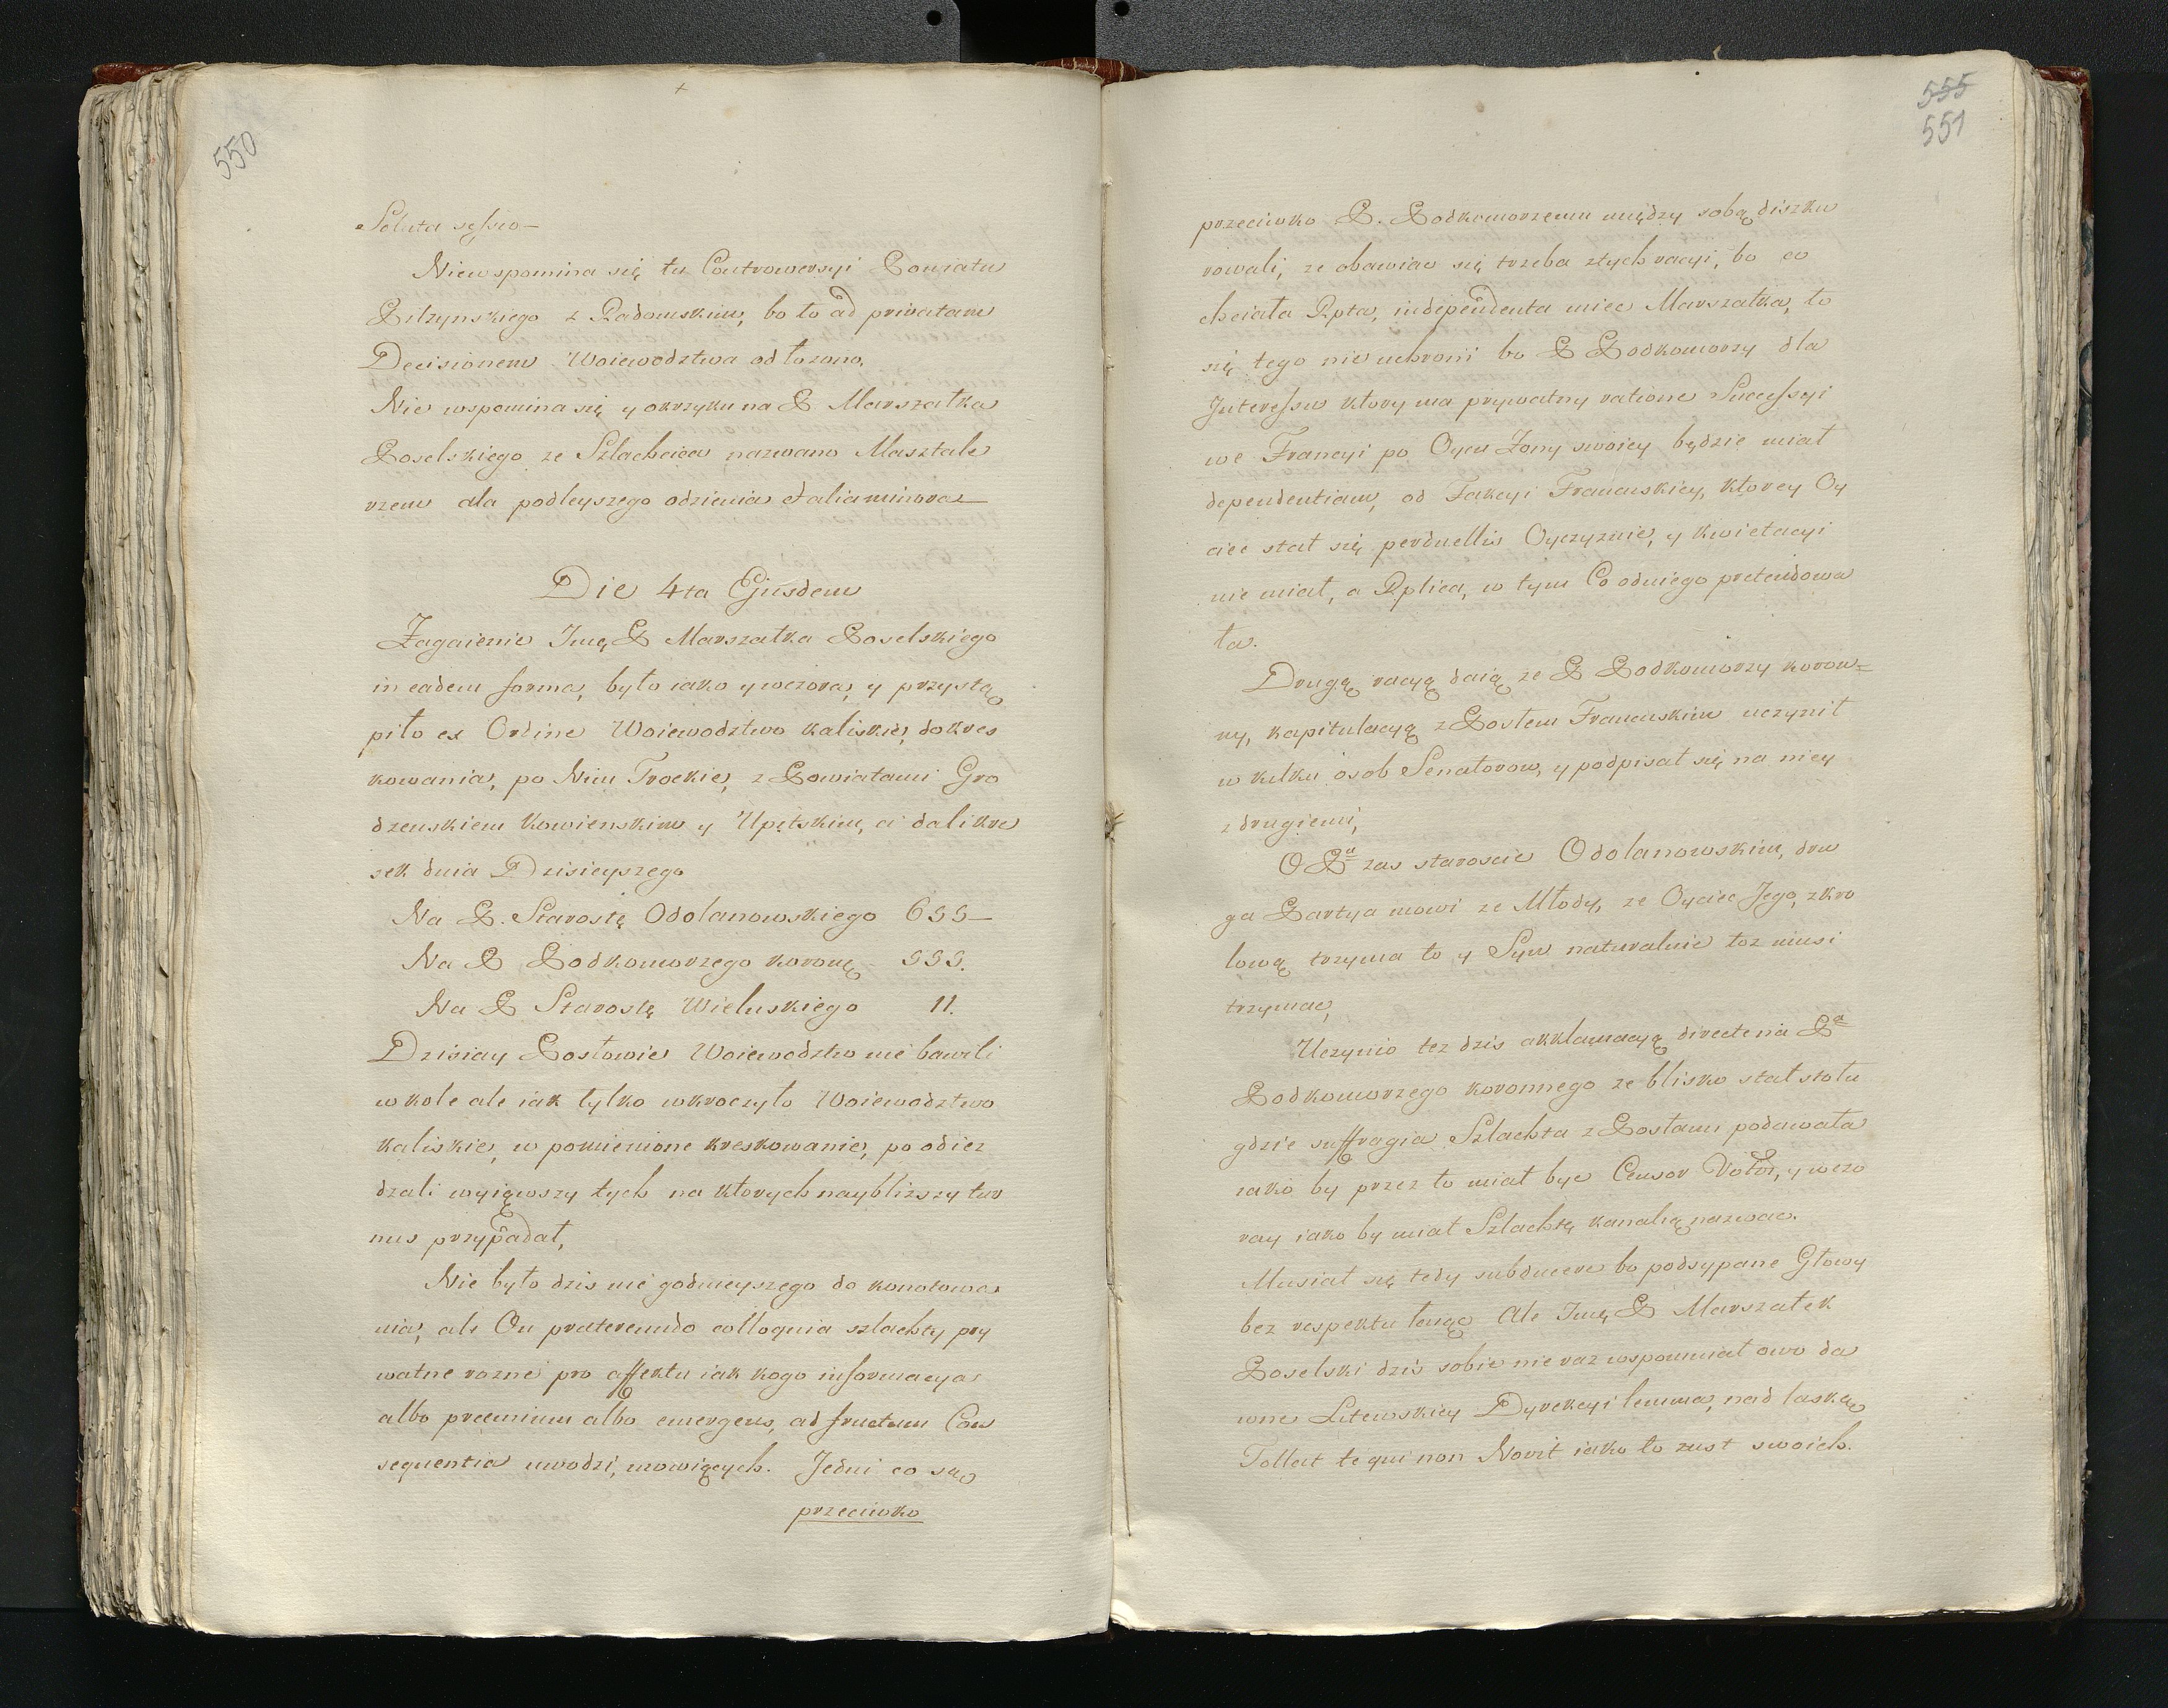 550
Soluta sessio—
Niewspomina się tu Controwersyi Powiatu
Bilzynskiego z Radomskim, bo to ad privatam
Decisionem Woiewodztwa odłozono,
Nie wspomina się y okrzyku na P Marszałka
Poselskiego ze Szlachcica nazwano Masztale
rzem dla podleyszego odzienia & alia minora—
Die 4ta Ejusdem
Zagaienie Jmę P Marszałka Poselskiego
in eadem forma, było iako y wczora, y przystą
piło ex Ordine Woiewodztwo kaliskie, do kres
kowania, po Nim Trockie, z Powiatami Gro
dzenskiem Kowienskim y Upitskim, ci dali kre
sek dnia Dzisieyszego
Na P. Starostę Odolanowskiego 655—
Na P Podkomorzego koronę 555.
Na P Starostę Wieluskiego 11.
Dzisiay Posłowie Woiewodztw nie bawili
w kole ale iak tylko wkroczyło Woiewodztwo
kaliskie, w pomienione kreskowanie, po odiez
dzali wyiąwszy tych na ktorych naybliższy tur
nus przypadał,
Nie było dzis nic godnieyszego do konotowa
nia, ale On prætereundo colloquia szlachty pry
watne rozne pro affektu iak kogo informacya
albo præmium albo emergens, ad fructum Con
sequentia uwodzi, mowiących. Jedni co są
przeciwko
555
551
przeciwko P. Podkomorzemu między sobą diszku
rowali, ze obawiac się trzeba z tych racyi, bo co
chciała Rpta, independenta miec Marszałka, to
się tego nie uchroni bo P Podkomorzy dla
Interessu ktory ma prywatny ratione Successyi
we Francyi po Oycu Zony swoiey będzie miał
dependentiam, od Fakcyi Francuskiey, ktorey Oy
ciec stał się perduellis Oyczyznie, y kwietacyi
nie miał, a Rplica, w tym Co odniego pretendowa
ła.
Drugą racyą daią ze P Podkomorzy koron=
ny, kapitulacyą z Posłem Francuskim uczynił
w kilku osob Senatorow, y podpisał się na niey
z drugiemi,
O Pa zas staroscie Odolanowskim, dru
ga Partya mowi ze Młody, ze Oyciec Jego, z kro
lową trzyma to y Syn naturalnie toz musi
trzymac,
Uczynio tez dzis akklamacyą directe na Pa
Podkomorzego koronnego ze blisko stał stołu
gdzie suffragia Szlachta z Posłami podawała
iako by przez to miał byc Censor Votor, y wczo
ray iako by miał Szlachtę kanalią nazwac.
Musiał się tedy subducere bo podsypane Głowy
bez respektu lenge Ale Jmę P Marszałek
Poselski dzis sobie nie raz wspomniał owo da
wne Litewskiey Dyrekcyi lemma, nad laską
Tollat te qui non Novit iako to zust swoich.